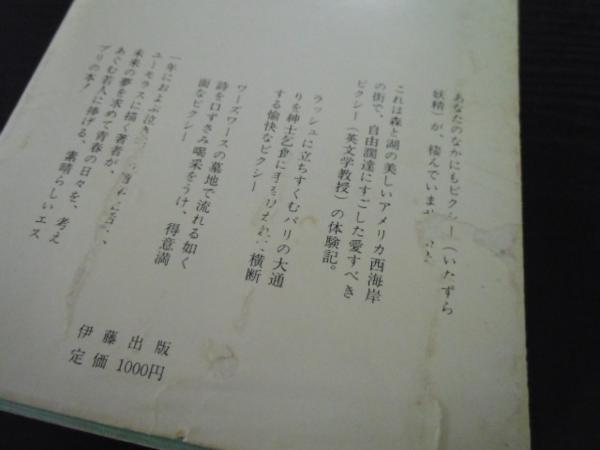 あなたのなかにもピクシー（いたずら
妖精）が、棲んでいま
これは森と湖の美しいアメリカ西海岸
の街で、自由潤達にすごした愛すべき
ピクシー（英文学教授）の体験記。
ラッシュに立ちすくむパリの大通
りを紳士乞食に 横断
する愉快なピクシー
ワーズワースの墓地で流れる如く
詩を口ずさみ喝采をうけ、得意満
面なピクシー
一年におよぶ泣き
ユーモラスに描く著者が、
未来の夢を求めて青春の日々を、考え
あぐむ若人に捧げる、素晴らしいエス
プリの本！
伊藤出版
定価1000円